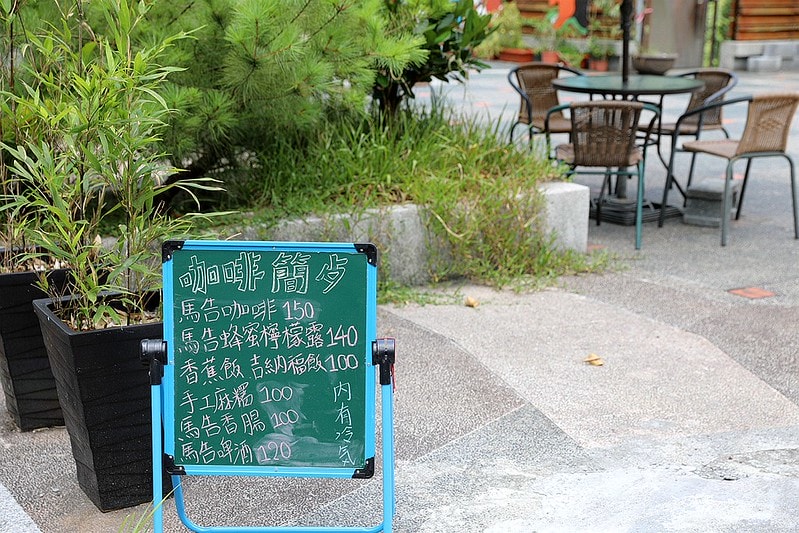 咖啡簡歺
馬告咖啡150
馬告蜂蜜檸檬露140
香蕉飯 吉納福飯100
手工麻糬100
馬告香腸100
馬告啤酒120
內有冷気